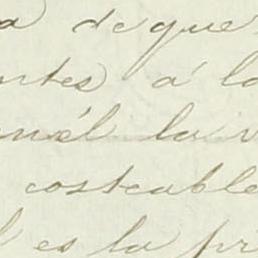 a de que
ntes á la
en él la v
costeable
l es la pri